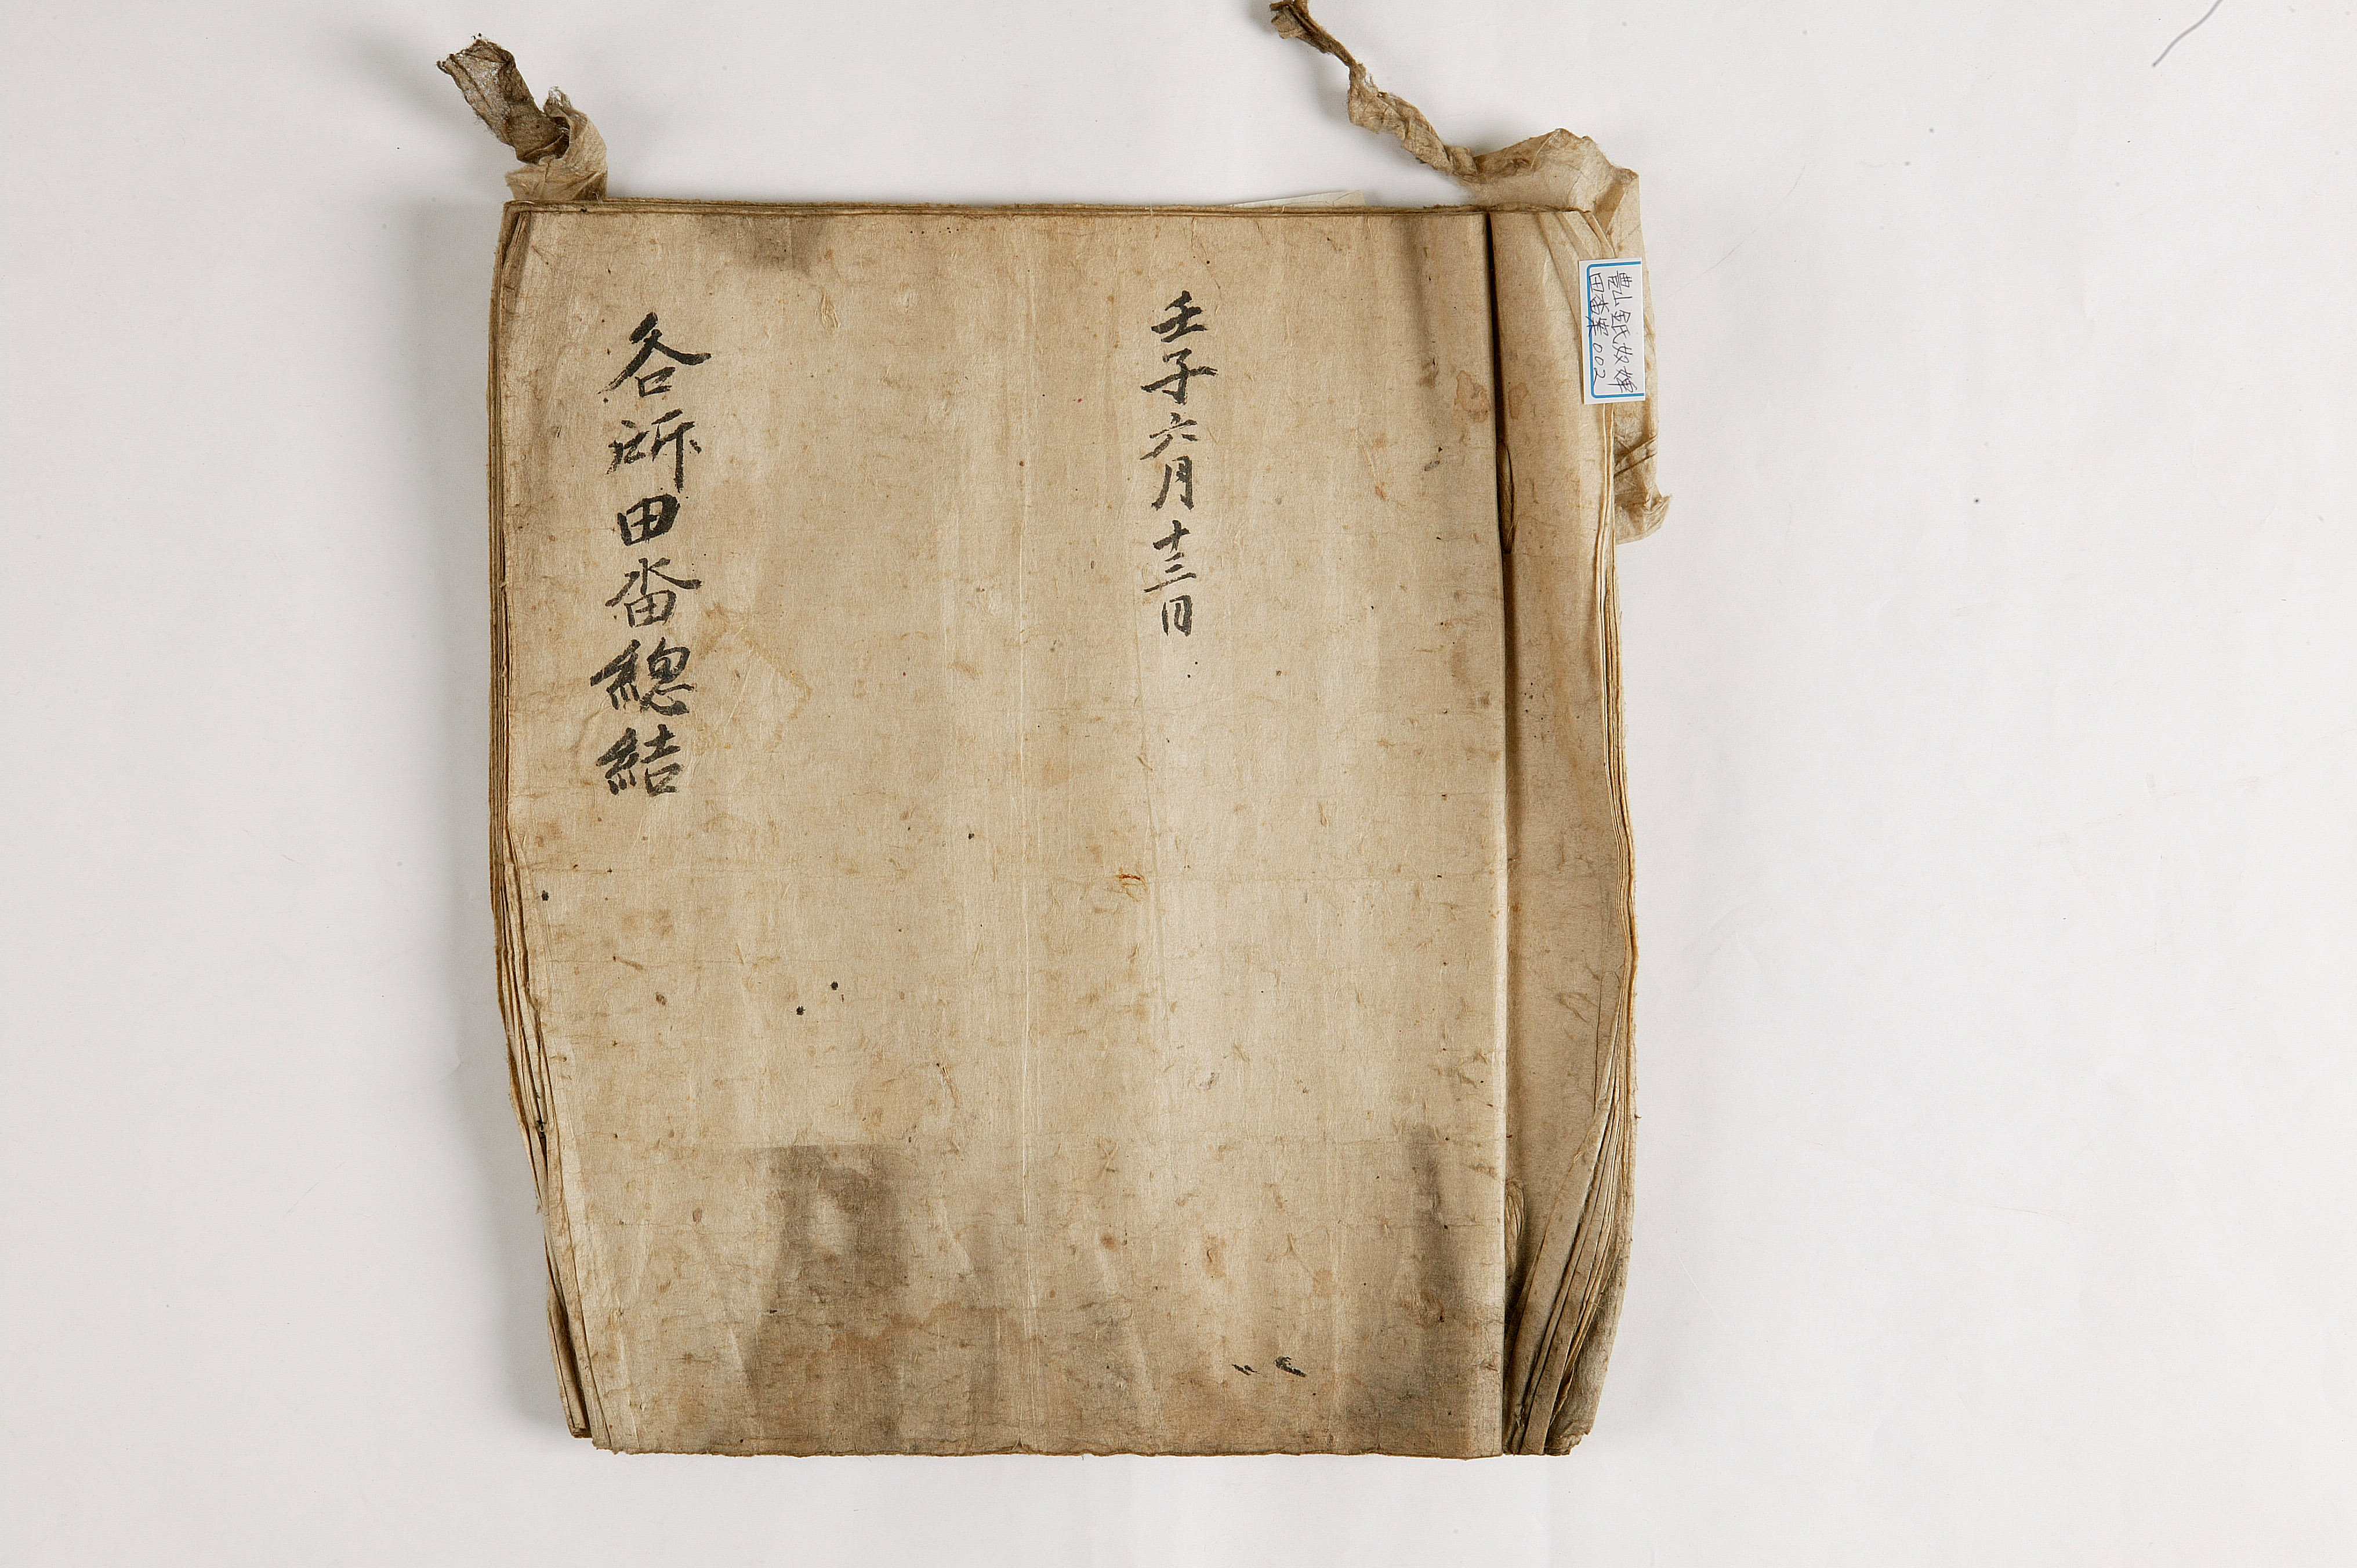 壬子六月十三日
各所田畓總結
豊山金氏奴婢
田畓案 002